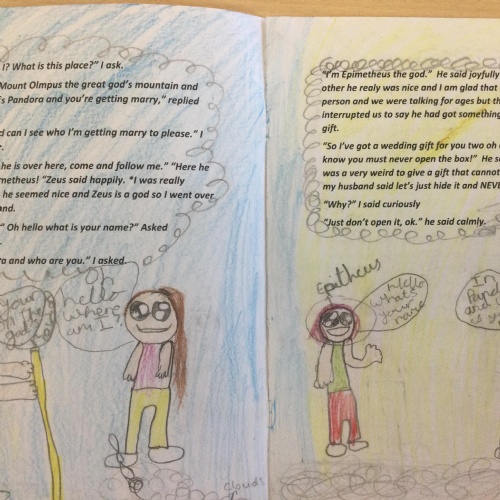 I? What is this place?" I ask.
Mount Olmpus the great god's mountain and
s Pandora and you're getting marry," replied
d can I see who I'm getting marry to please." I
he is over here, come and follow me." "Here he
metheus! "Zeus said happily. *I was really
he seemed nice and Zeus is a god so I went over
and.
" Oh hello what is your name?" Asked
ra and who are you." I asked.
your
hello
where
am I?
clouds
"I'm Epimetheus the god." He said joyfully
other he realy was nice and I am glad that
person and we were talking for ages but th
interrupted us to say he had got something
gift.
"So I've got a wedding gift for you two oh
know you must never open the box!" He s
was a very weird to give a gift that cannot
my husband said let's just hide it and NEV
"Why?" I said curiously
"Just don't open it, ok." he said calmly.
Epitheus
hello
whats
your
name